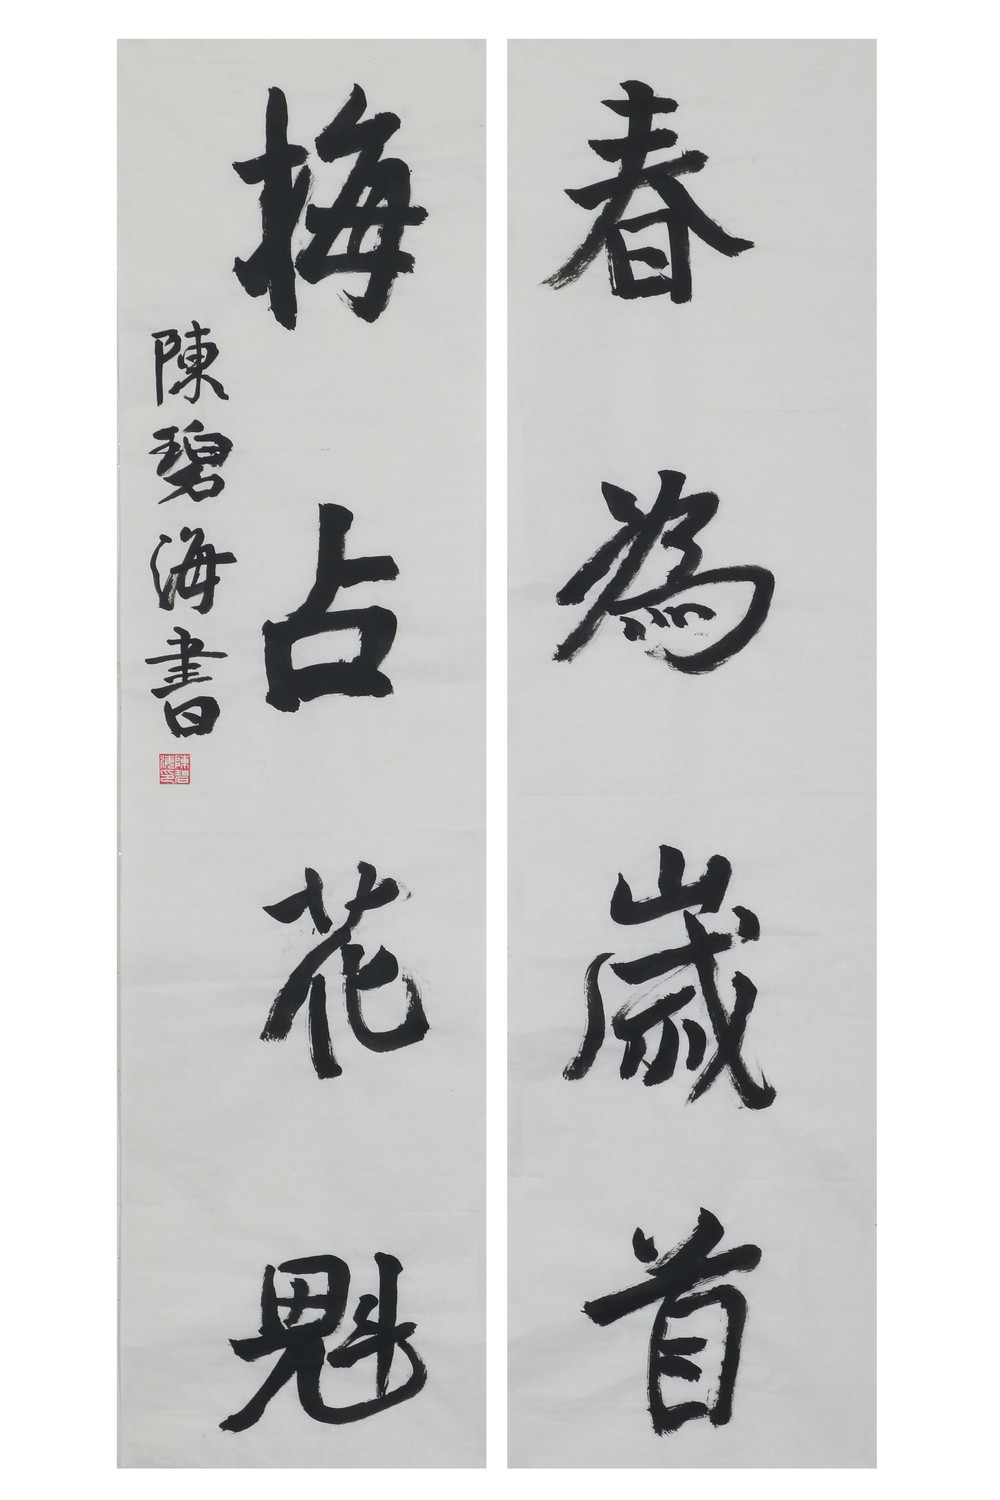 春為歲首
梅占花魁
陳碧海書
陳碧海印